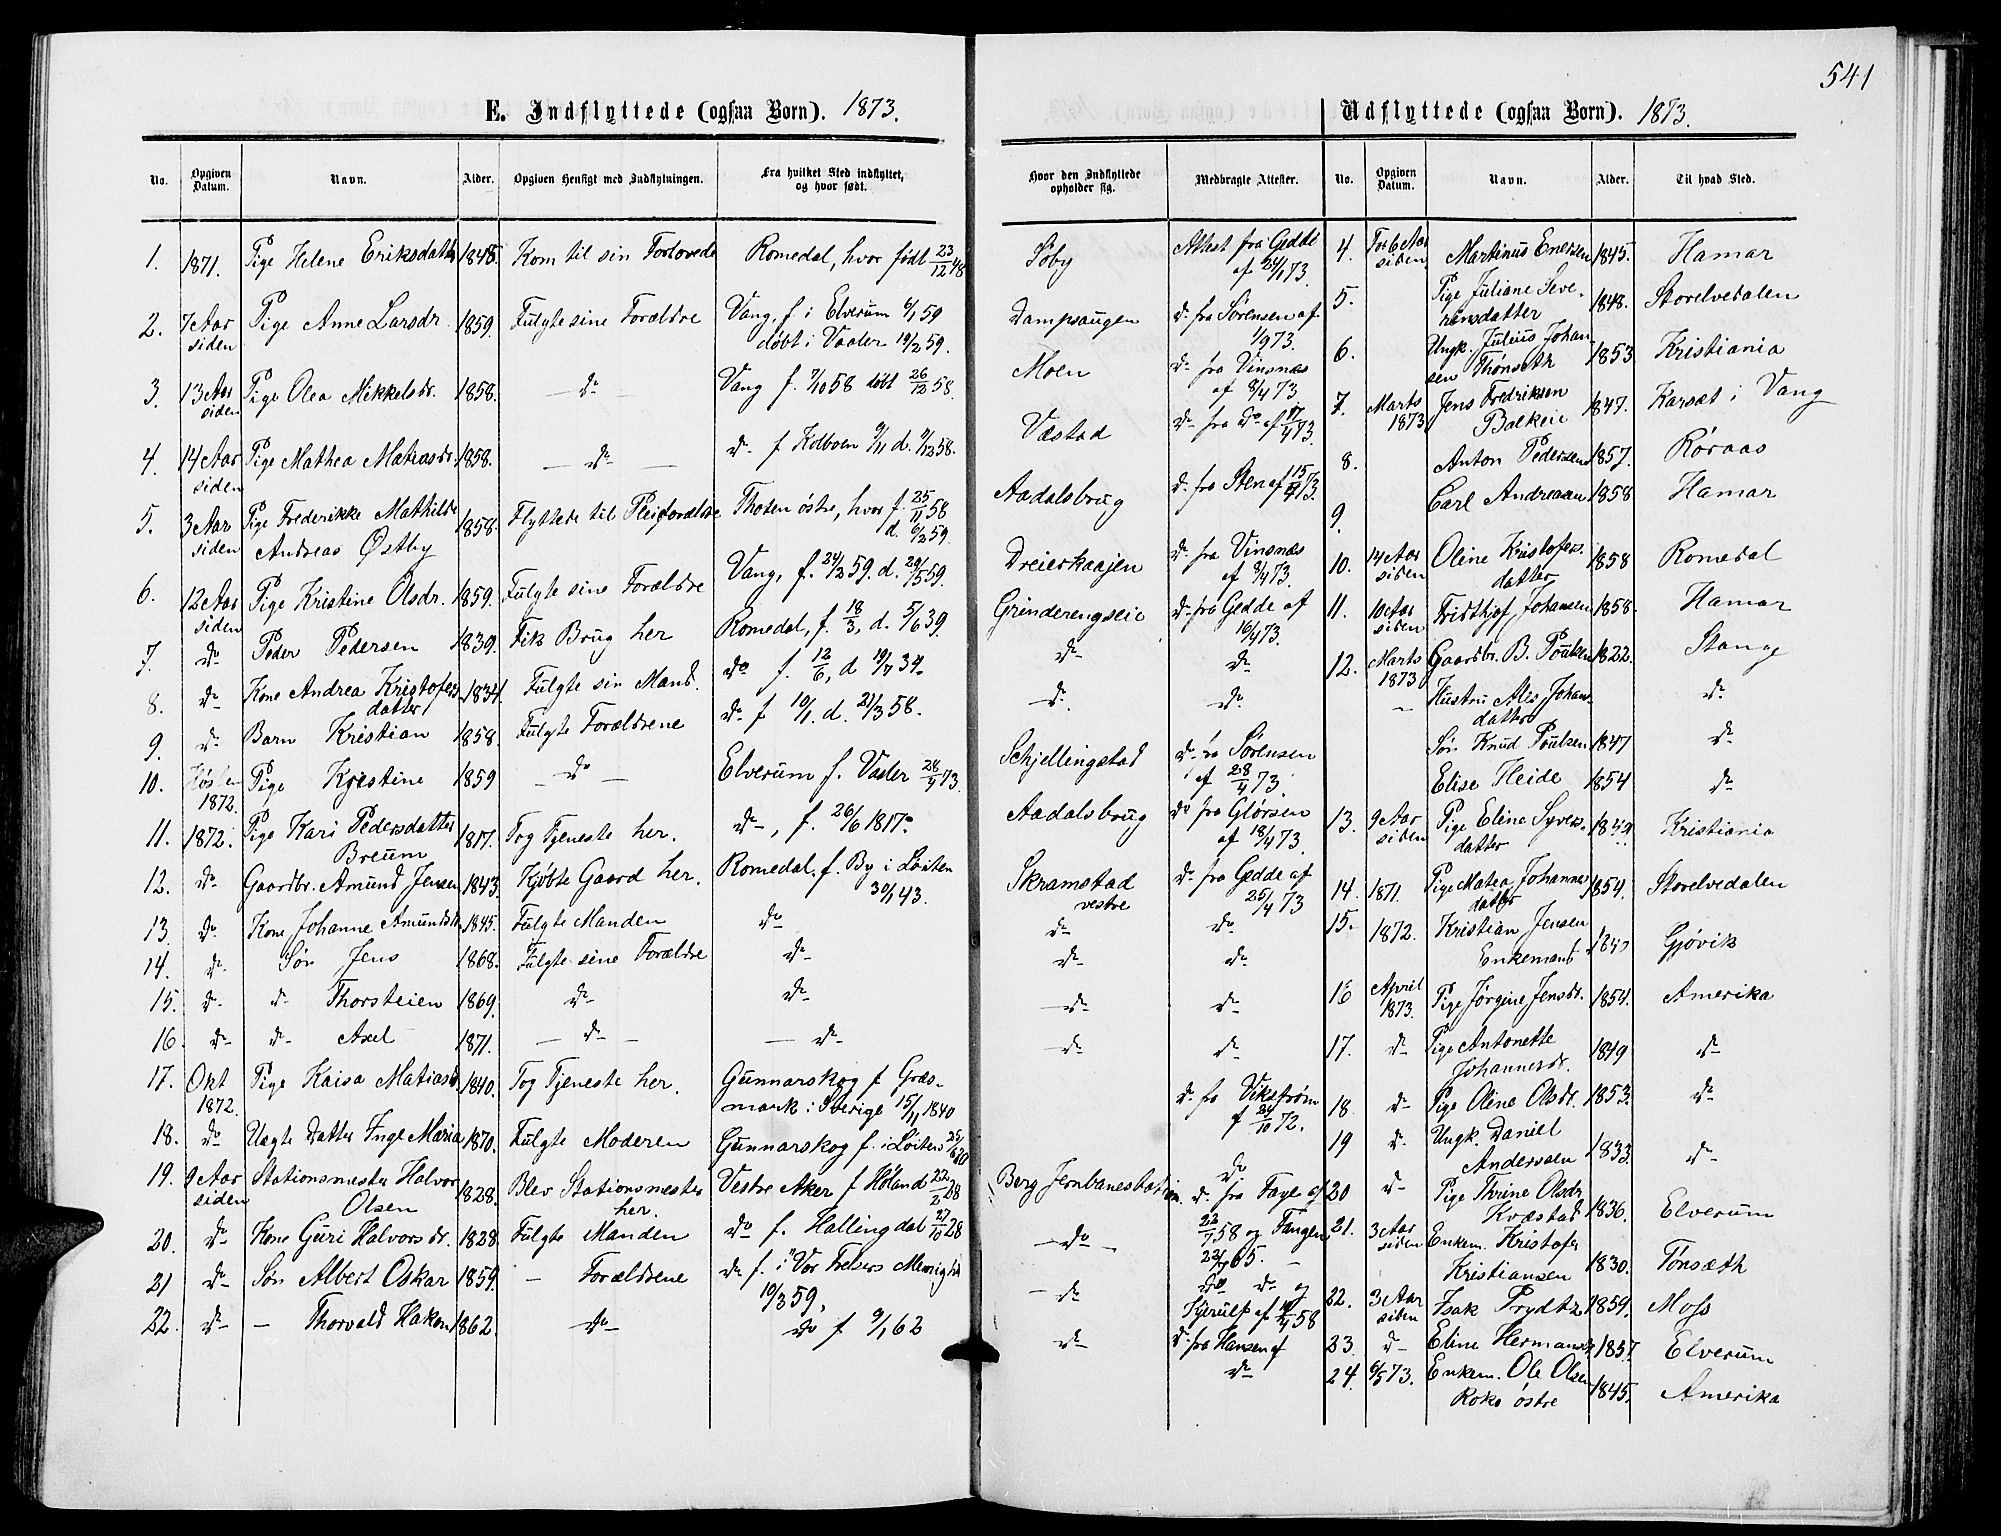 541
E. Indflyttede (ogsaa Børn). 1873.
No. Opgiven Datum. Navn. Alder. Opgiven Hensigt med Indflytningen. Fra hvilket Sted indflyttet, og hvor født.
1. 1871. Pige Helene Eriksdatter 1848. Kom til sin Forlovede Romedal, hvor født 23/12 48
2. 7 Aar siden Pige Anne Larsdr. 1859. Fulgte sine Forældre Vang, f. i Elverum 6/1 59
døbt i Vaaler 19/2 59.
3. 13 Aar siden Pige Olea Mikkelsdr. 1858. — do — Vang f. 7/10 58 døbt 26/12 58.
4. 14 Aar siden Pige Mathea Matiasdr. 1858. — do — do f Kolboen 9/11 d. 7/12 58.
5. 3 Aar siden Pige Frederikke Mathilde 1858. Flyttede til Pleiforældre Thoten østre, hvor f. 25/11 58
Andreas Østby d. 6/2 59.
6. 12 Aar siden Pige Kristine Olsdr. 1859. Fulgte sine Forældre Vang, f. 24/2 59. d. 29/5 59.
7. do Peder Pedersen 1839. Fik Brug her Romedal, f. 18/3, d. 5/6 39.
8. do Kone Andrea Kristofers 1834. Fulgte sin Mand. do f. 12/6, d 19/7 34.
datter
9. do Barn Kristian 1858. Fulgte Forældrene do f 10/1. d. 21/3 58.
10. Høsten 1872. Pige Kristine 1859 — do — Elverum f. Vaaler 28/4 73.
11. 1872. Pige Kari Pedersdatter 1817. Tog Tjeneste her. do, f. 26/6 1817.
Breum
12. do Gaardbr. Amund Jensen 1843. Kjøbte Gaard her. Romedal, f. By i Løiten
30/1 43.
13. do Kone Johanne Amundsdr. 1845. Fulgte Manden do
14. do Søn Jens 1868. Fulgte sine Forældre do
15. do do Thorsteien 1869. do do
16. do do Axel 1871. — do — — do —
17. Okt 1872. Pige Kaisa Matiasdr 1840. Tog Tjeneste her. Gunnarskog f Græs-
mark i Sverige 15/11 1840
18. do Uægte Datter Inge Maria 1870. Fulgte Moderen Gunnarskog f. i Løiten
19. 9 Aar siden Stationsmester Halvor 1828. Blev Stationsmester Vestre Aker f Høland 22/2 28
Olsen her.
20. do Kone Guri Halvorsdr. 1828. Fulgte Manden do f. Hallingdal 27/10 28
21 do Søn Albert Oskar 1859. — Forældrene do f. i "Vor Frelsers Menighd
19/3 59.
22. do — Thorvald Hakon 1862. do do f 9/1 62
Udflyttede (ogsaa Børn). 1873.
Hvor den Indflyttede opholder sig. Medbragte Attester. No. Opgiven Datum. Navn. Alder. Til hvad Sted.
Søby Attest fra Gedde
af 24/1 73.
Dampsaugen do fra Sørensen af
1/9 73.
Moen do fra Vinsnæs
af 8/4 73
Væstad do fra do af 17/4 73.
Aadalsbrug do fra Sten af 15/4 73.
Dreierkaajen do fra Vinsnæs
af 8/4 73.
Grinderengseie do fra Gedde af
16/4 73.
do do
do do
Schjellingstad do fra Sørensen
af 28/4 73.
Aadalsbrug do fra Glørsen
af 18/4 73.
Skramstad do fra Gedde af
vestre 25/4 73
do do
do do
do do
do do
do fra Vikstrøm
af 24/10 72.
do
Berg Jernbanestation do fra Faye af
— do — 22/7 58 og Fangen
22/7 65.
— do do do og
Kjerulf af 58
do do fra Hansen af
do
4. For 6 Aar siden Martinus Enersen 1845. Hamar
5. Pige Juliane Seve- 1848. Storelvedalen
rensdatter
6. Ungk. Julius Johan- 1853 Kristiania
sen Thønseth
7. Marts 1873 Jens Fredriksen 1847. Karsæt i Vang
Bakken
8. Anton Pedersen 1857. Røraas
9 Carl Andreasen 1858 Hamar
10. 14 Aar siden Oline Kristofers- 1858 Romedal
datter
11. 10 Aar siden Fridthjof Johansen 1858. Hamar
12. Marts 1873 Gaardbr. B. Poulsen 1822. Stange
— Hustru Alis Johans- do
datter
Søn Knud Poulsen 1847 do
Elise Heide 1854 do
13. 9 Aar siden Pige Eline Syver- Kristiania
datter
14. 1871. Pige Matea Johannes 1854. Storelvedalen
datter
15. 1872. Kristian Jensen Gjøvik
Enkemand
16 April 1873. Pige Jørgine Jensdr. 1854. Amerika
17. do Pige Antonette 1849 do
Johannesdr.
18. do Pige Oline Olsdr. 1853. do
19 do Ungk. Daniel 1833. do
Anderssen
20 do Pige Thrine Olsdr 1836. Elverum
Kvæstad
21. 3 Aar siden Enkem. Kristofer 1830. Tønsæth
Kristiansen
22. 3 Aar siden Isak Prydtz 1859. Moss
23. do Eline Hermansdr 1857. Elverum
24. 6/5 73. Enkem. Ole Olsen 1845. Amerika
Roko østre